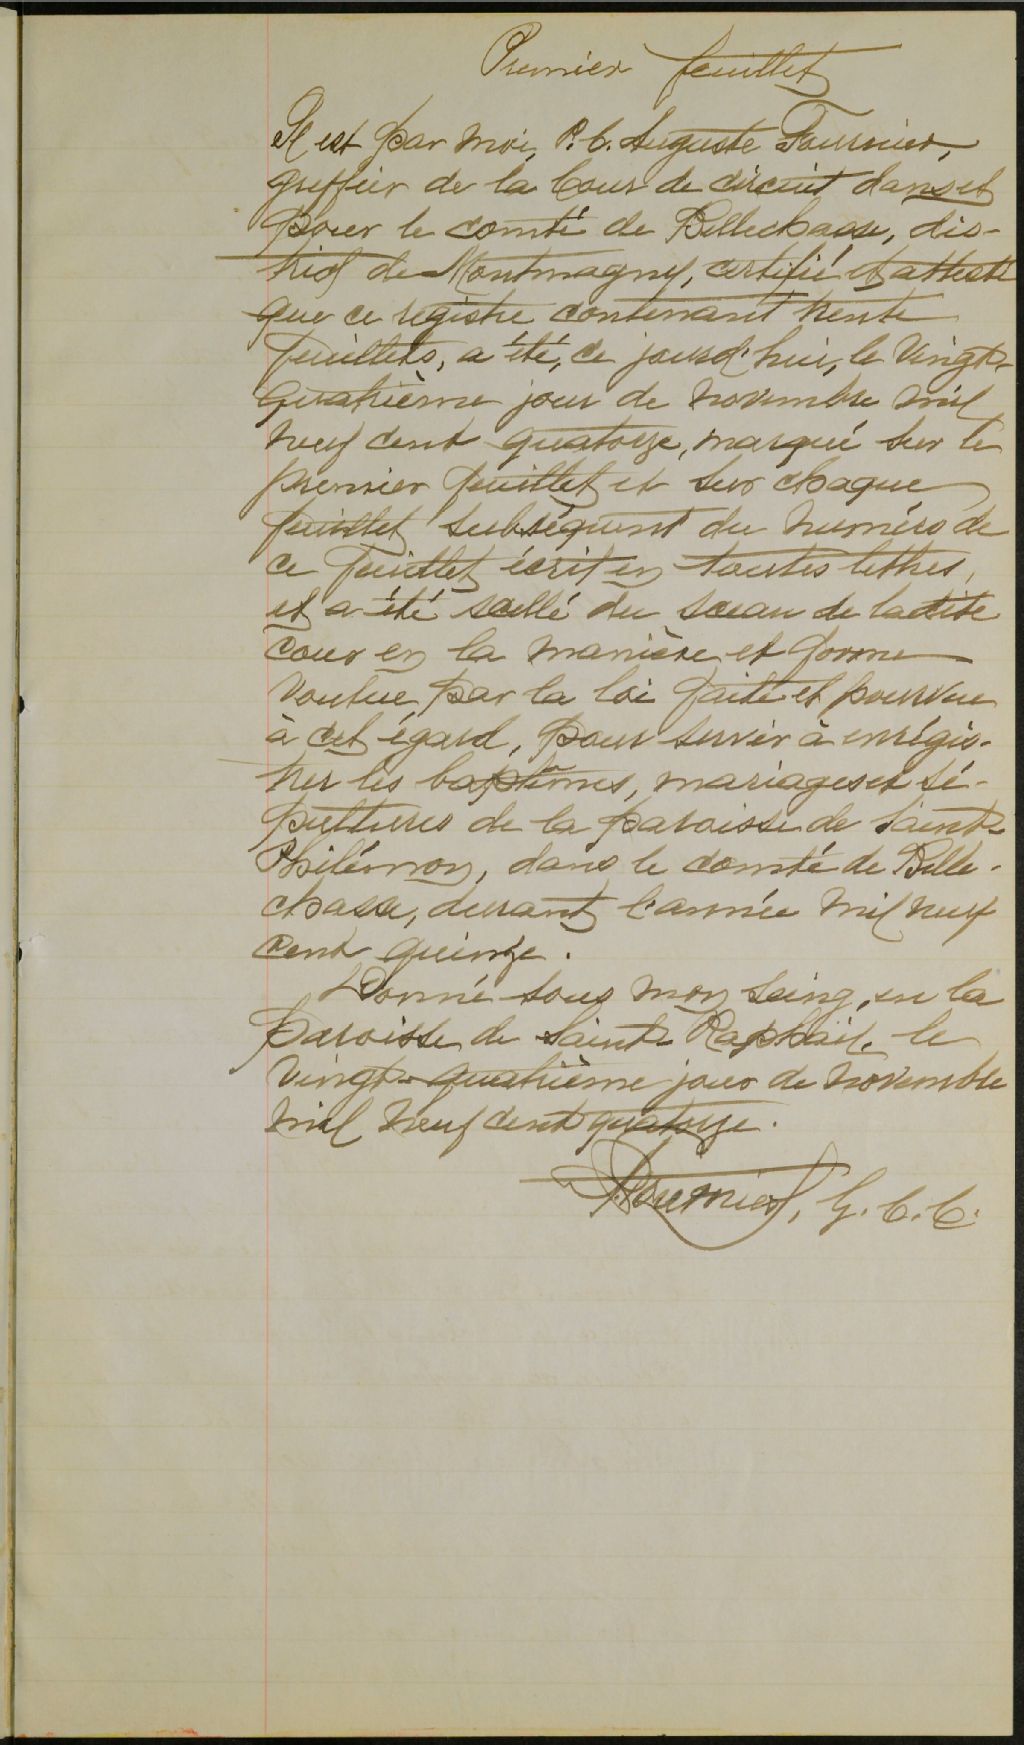 Premier feuillet
Il est par moi, P. C. Auguste Fournier,
greffier de la Cour de circuit dans et
pour le comté de Bellechasse, dis-
trict de Montmagny, certifié et attesté
que ce registre contenant trente
feuillets, a été, ce jourd'hui, le vingt-
quatrième jour de novembre mil
neuf cent quatorze, marqué sur le
premier feuillet et sur chaque
feuillet subséquent du numéro de
ce feuillet écrit en toutes lettres,
et a été scellé du sceau de la dite
cour en la manière et forme
voulue par la loi faite et pourvue
à cet égard, pour servir à enrégis-
trer les baptêmes, mariages et sé-
pultures de la paroisse de Saint-
Philémon, dans le comté de Belle-
chasse, durant l'année mil neuf
cent quinze.
Donné sous mon seing, en la
paroisse de Saint-Raphaël, le
vingt-quatrième jour de novembre
mil neuf cent quatorze.
Fournier, G. C. C.